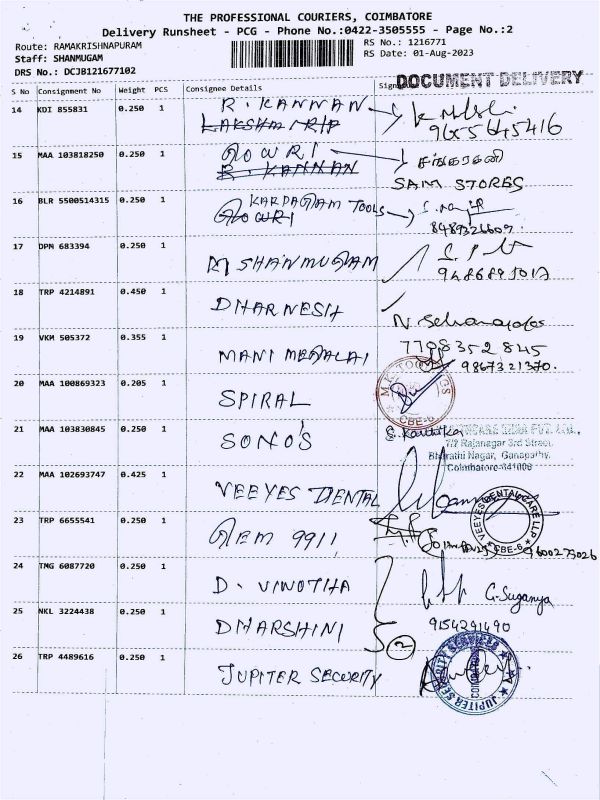 THE PROFESSIONAL COURIERS, COIMBATORE
Delivery Runsheet - PCG - Phone No.:0422-3505555 - Page No.:2
Route: RAMAKRISHNAPURAM
RS No.: 1216771
Staff: SHANMUGAM
RS Date: 01-Aug-2023
DRS No.: DCJB121677102
DOCUMENT DELIVERY
S No Consignment No Weight PCS Consignee Details
14 KDI 855831 0.250 1 R. KANNAN
9655645416
15 MAA 103818250 0.250 1 GOWRI
R. KANNAN
SAM STORES
16 BLR 5500514315 0.250 1 KARPAGAM TOOLS
GOWRI
8489326607.
17 DPN 683394 0.250 1 M SHANMUGAM
18 TRP 4214891 0.450 1 DHARNESH
19 VKM 505372 0.355 1 MANI MEGALAI
7708352845
9867321370.
20 MAA 100869323 0.205 1 SPIRAL
CBE-6
21 MAA 103830845 0.250 1 SONO'S
7/2 Rajanagar 3rd Street,
Bharathi Nagar, Ganapathy,
Coimbatore-641006
22 MAA 102693747 0.425 1 VEEYES DENTAL
VEEYES DENTAL CARE LLP
CBE-6
23 TRP 6655541 0.250 1 GEM 9911
9600273026
24 TMG 6087720 0.250 1 D. VINOTHA
G. Suganya
25 NKL 3224438 0.250 1 DHARSHINI
9154291490
2
26 TRP 4489616 0.250 1 JUPITER SECURITY
JUPITER SECURITY SERVICES